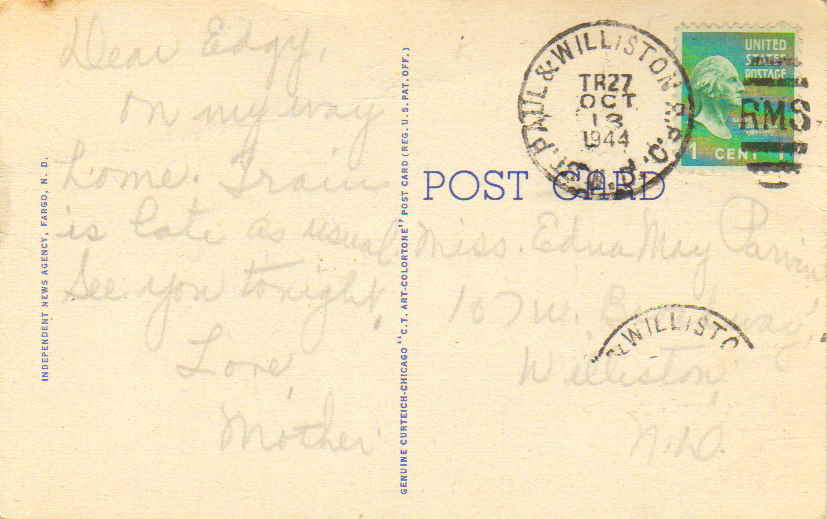 Dear Edgy,
On my way
home. Train
is late as usual
See you tonight,
Love,
Mother
INDEPENDENT NEWS AGENCY, FARGO, N. D.
GENUINE CURTEICH-CHICAGO "C.T. ART-COLORTONE" POST CARD (REG. U.S. PAT. OFF.)
POST CARD
ST. PAUL & WILLISTON R.P.O.
TR27
OCT
13
1944
RMS
UNITED
STATES
POSTAGE
1 CENT 1
Miss. Edna May Parvin
107 W. Broadway,
& WILLISTO
Williston,
N.D.